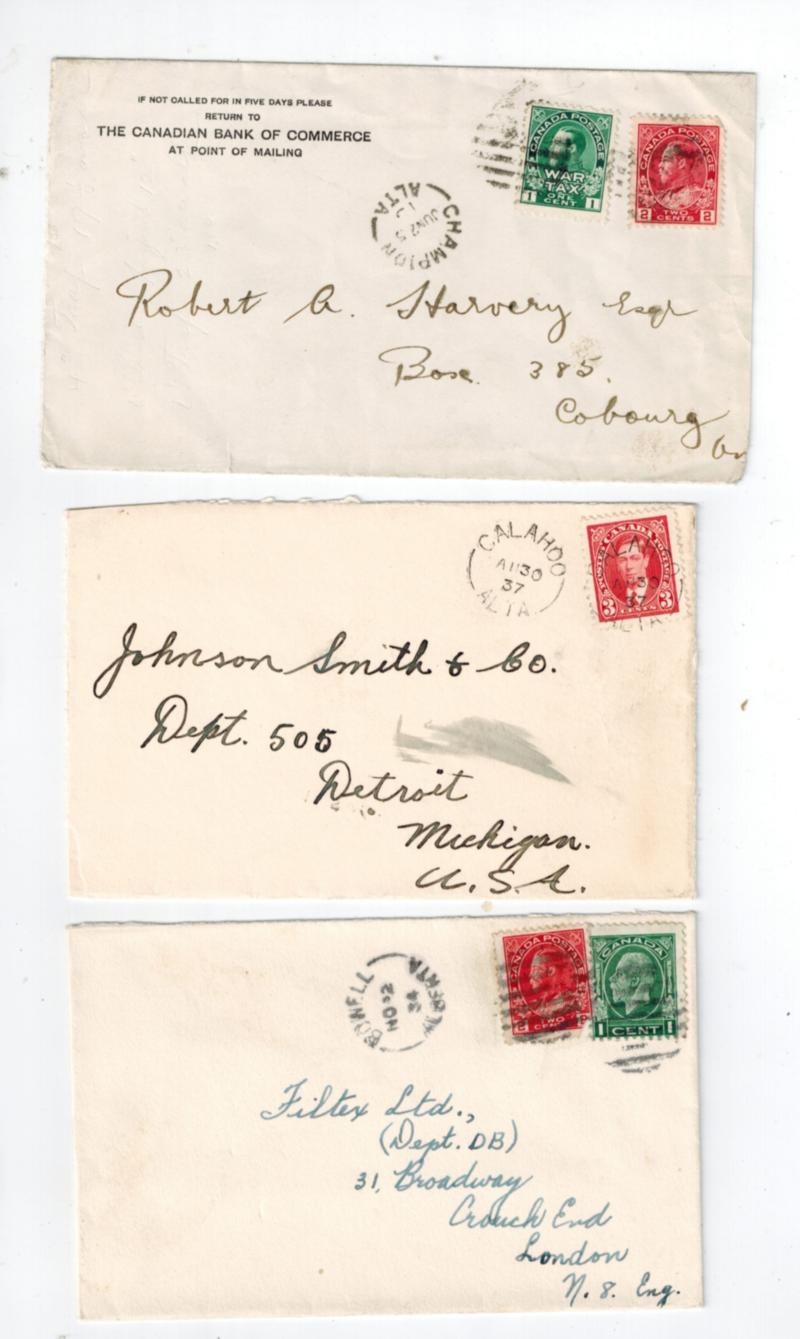 IF NOT CALLED FOR IN FIVE DAYS PLEASE
RETURN TO
THE CANADIAN BANK OF COMMERCE
AT POINT OF MAILING
CANADA POSTAGE
WAR
TAX
ONE
CENT
1 1
CANADA POSTAGE
2 TWO CENTS 2
CHAMPION
JUN 25
ALTA
Robert A. Harvery Esqr
Box 385.
Cobourg
CALAHOO
AU 30
37
ALTA
POSTES CANADA POSTAGE
3 CENTS 3
CALAHOO
AU 30
37
ALTA
Johnson Smith & Co.
Dept. 505
Detroit
Michigan.
U.S.A.
BOWELL
NO 2
34
ALBERTA
CANADA POSTAGE
2 TWO
CANADA
1 CENT 1
Filtex Ltd.,
(Dept. DB)
31, Broadway
Crouch End
London
N. 8. Eng.